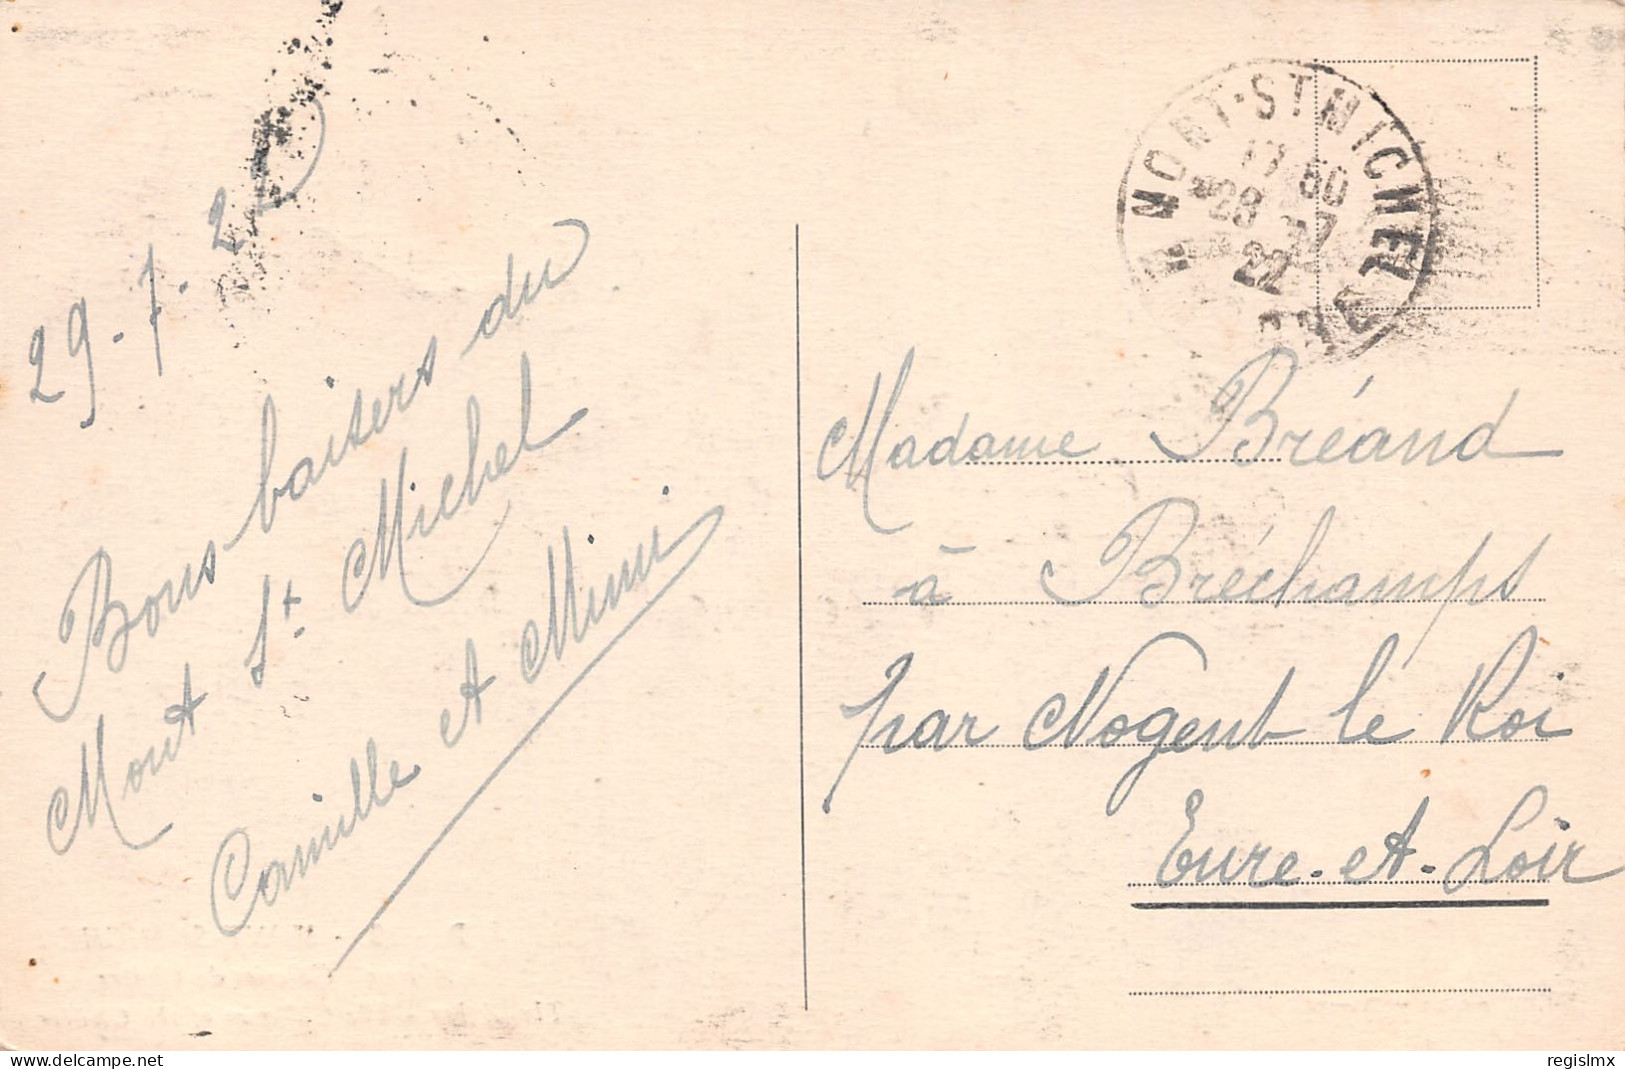 29.7.22
Bons baisers du
Mont St Michel
Camille et Mimi
MONT-ST MICHEL
17 50
28 -7
22
Madame Bréand
à Bréchamps
par Nogent le Roi
Eure-et-Loir
delcampe.net
regislmx